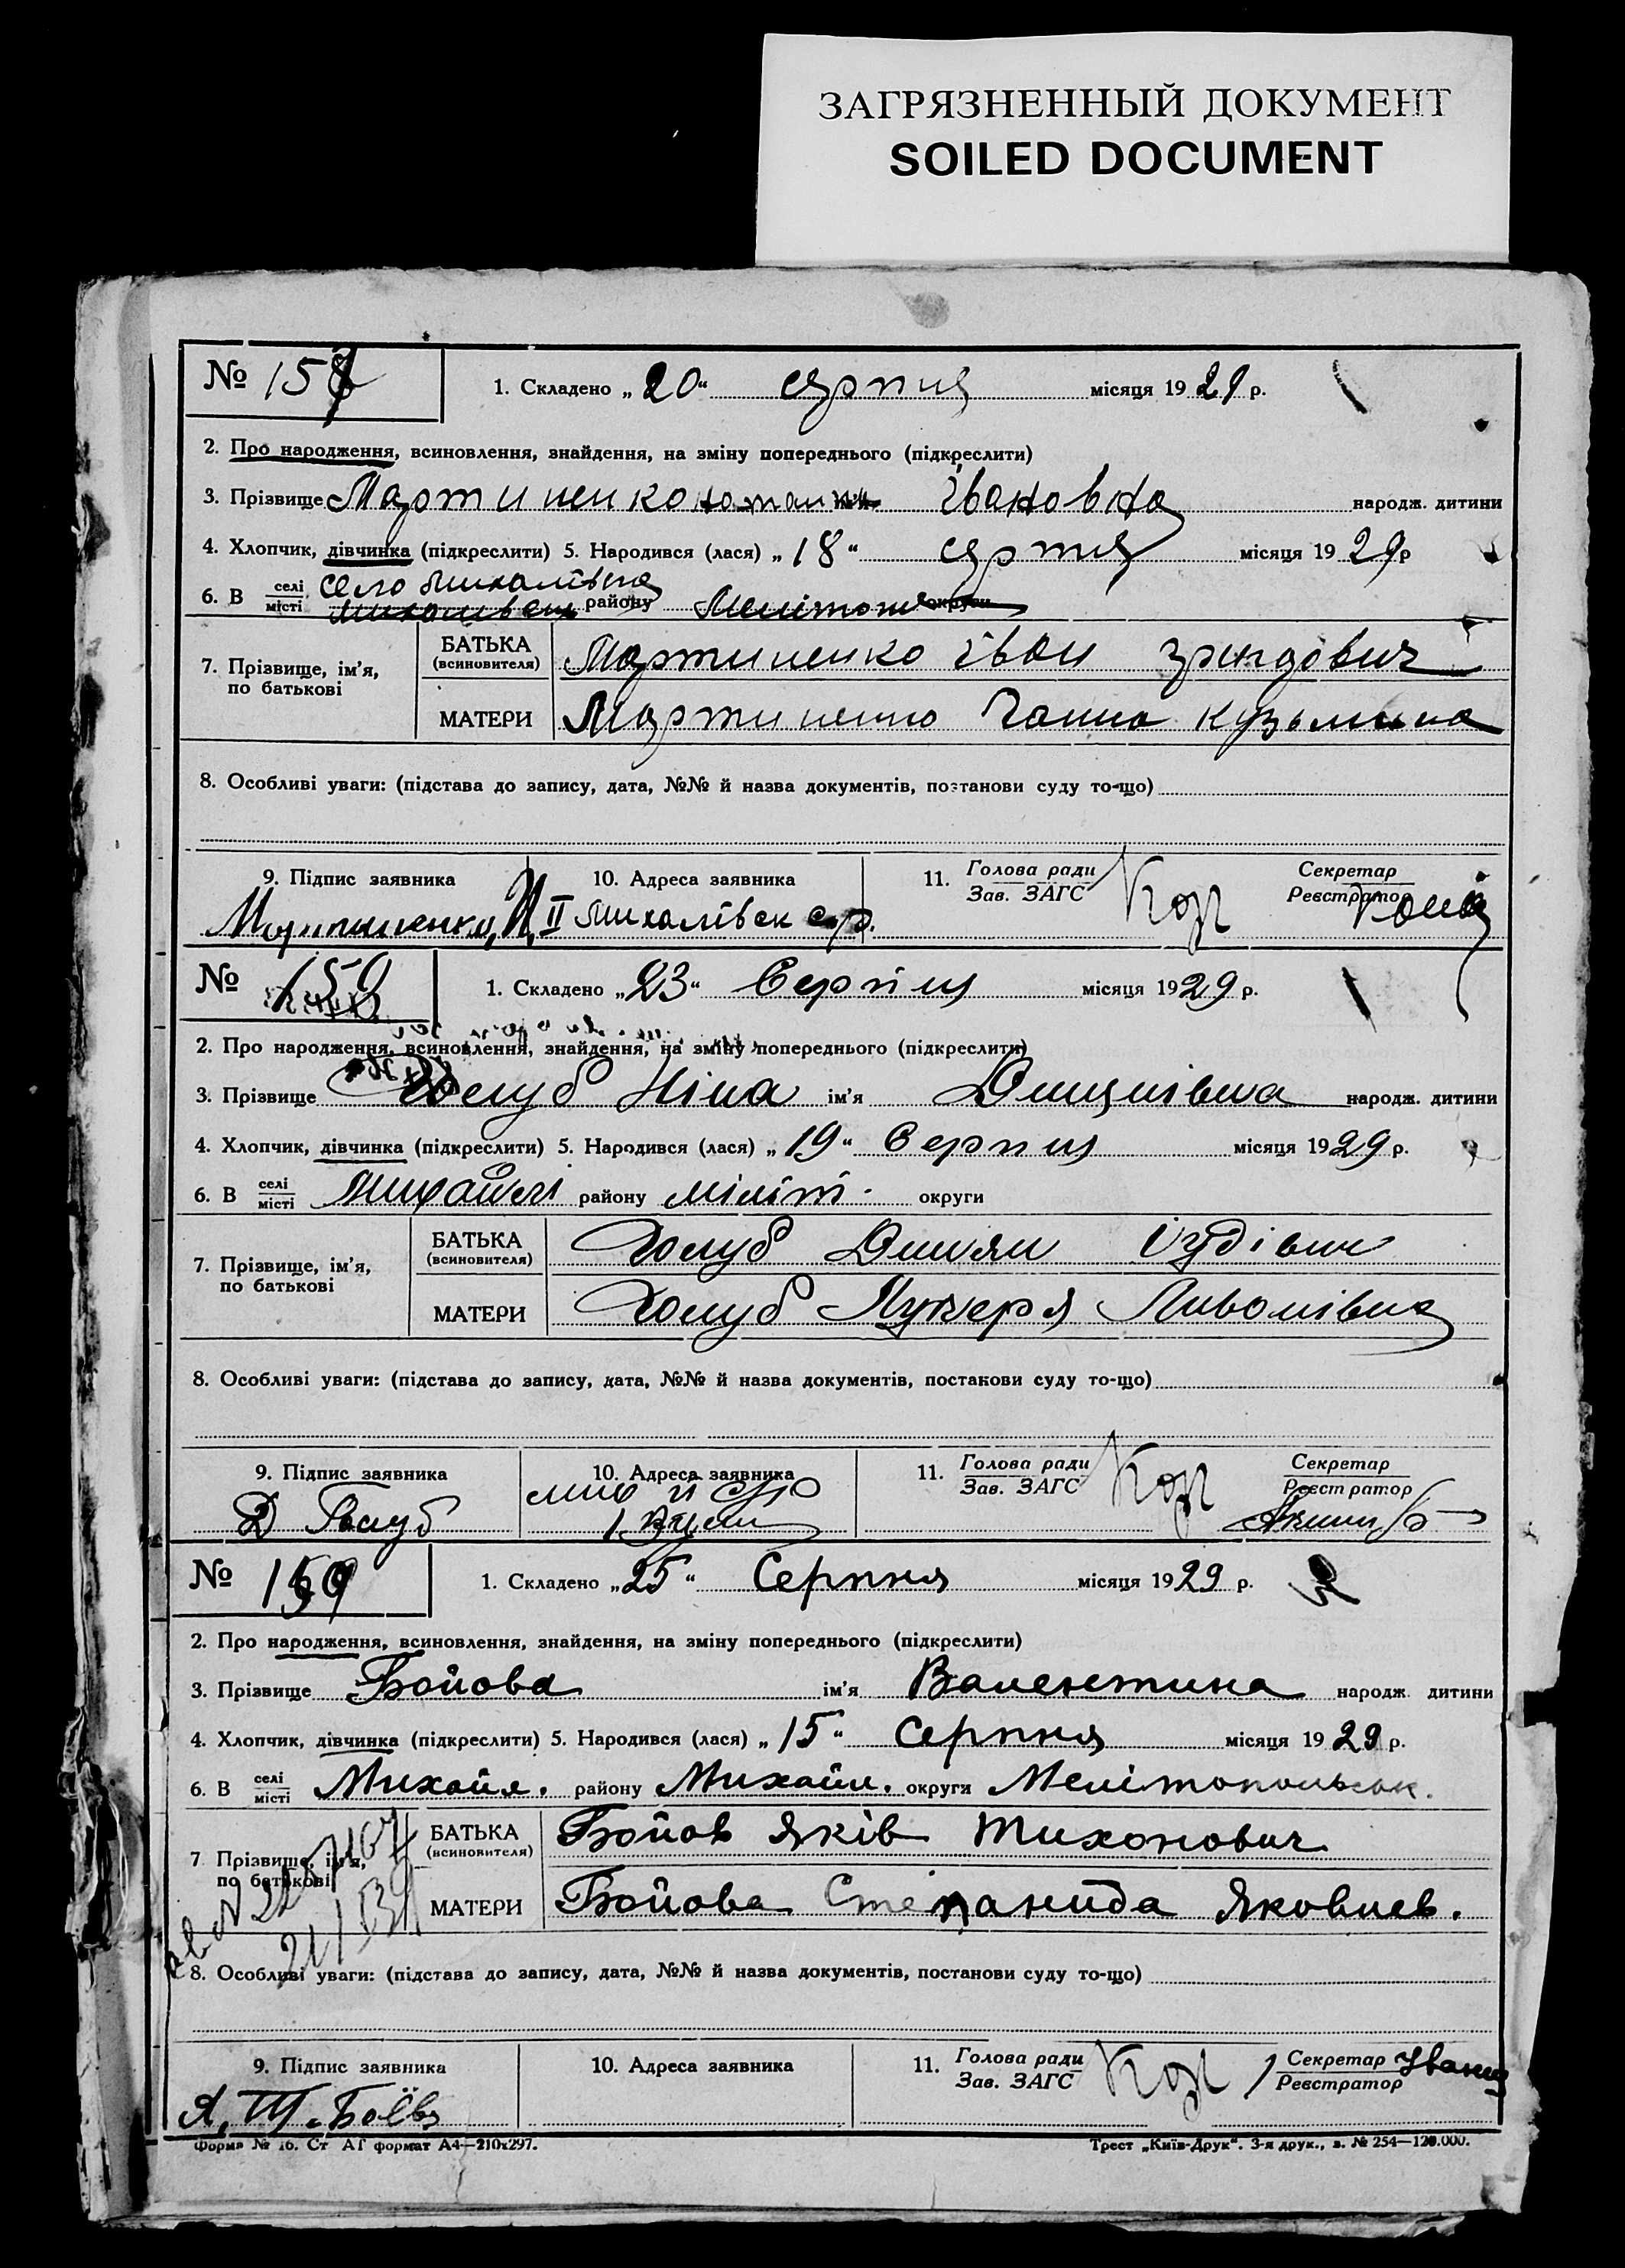 ЗАГРЯЗНЕННЫЙ ДОКУМЕНТ
SOILED DOCUMENT
№ 157 1. Складено „20“ серпня місяця 1929 р.
2. Про народження, всиновлення, знайдення, на зміну попереднього (підкреслити)
3. Прізвище Мартиненко івановна народж. дитини
4. Хлопчик, дівчинка (підкреслити) 5. Народився (лася) „18“ серпня місяця 1929 р
6. В селі місті село Михалівка району округи
7. Прізвище, ім'я, по батькові
БАТЬКА (всиновителя) Мартиненко іван
МАТЕРИ Мартиненко Ганна кузьмина
8. Особливі уваги: (підстава до запису, дата, №№ й назва документів, постанови суду то-що)
9. Підпис заявника 10. Адреса заявника 11. Голова ради Зав. ЗАГС Секретар Реєстратор
Мартиненко И II Михалівск с/р.
№ 1. Складено „23“ Серпня місяця 1929 р.
2. Про народження, всиновлення, знайдення, на зміну попереднього (підкреслити)
3. Прізвище Голуб Ніна ім'я Дмиянівна народж. дитини
4. Хлопчик, дівчинка (підкреслити) 5. Народився (лася) „19“ Серпня місяця 1929 р.
6. В селі місті району Меліт. округи
7. Прізвище, ім'я, по батькові
БАТЬКА (всиновителя) Голуб Димян
МАТЕРИ Голуб Лукеря
8. Особливі уваги: (підстава до запису, дата, №№ й назва документів, постанови суду то-що)
9. Підпис заявника 10. Адреса заявника 11. Голова ради Зав. ЗАГС Секретар Реєстратор
Д Голуб
№ 159 1. Складено „25“ Серпня місяця 1929 р.
2. Про народження, всиновлення, знайдення, на зміну попереднього (підкреслити)
3. Прізвище Бойова ім'я Валентина народж. дитини
4. Хлопчик, дівчинка (підкреслити) 5. Народився (лася) „15“ Серпня місяця 1929 р.
6. В селі місті Михайл. району Михайл. округи Мелітопольськ.
7 Прізвище, ім'я, по батькові
БАТЬКА (всиновителя) Бойов Яків Тихонович
МАТЕРИ Бойова Степанида Яковлев.
8. Особливі уваги: (підстава до запису, дата, №№ й назва документів, постанови суду то-що)
9. Підпис заявника 10. Адреса заявника 11. Голова ради Зав. ЗАГС Секретар Реєстратор
Я. Т. Боёв
Форма № 16. Ст АГ формат А4—210х297. Трест „Київ-Друк“. 3-я друк., з. № 254—120.000.